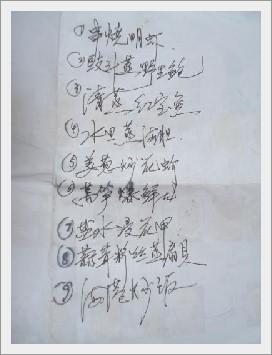 ①串烧明虾
②豉汁蒸野生鲍
③清蒸红宝鱼
④水果蒸海胆
⑤姜葱炒花蛤
⑥莴笋爆鲜
⑦盐水浸花甲
⑧蒜茸粉丝蒸扇贝
⑨海港炒饭